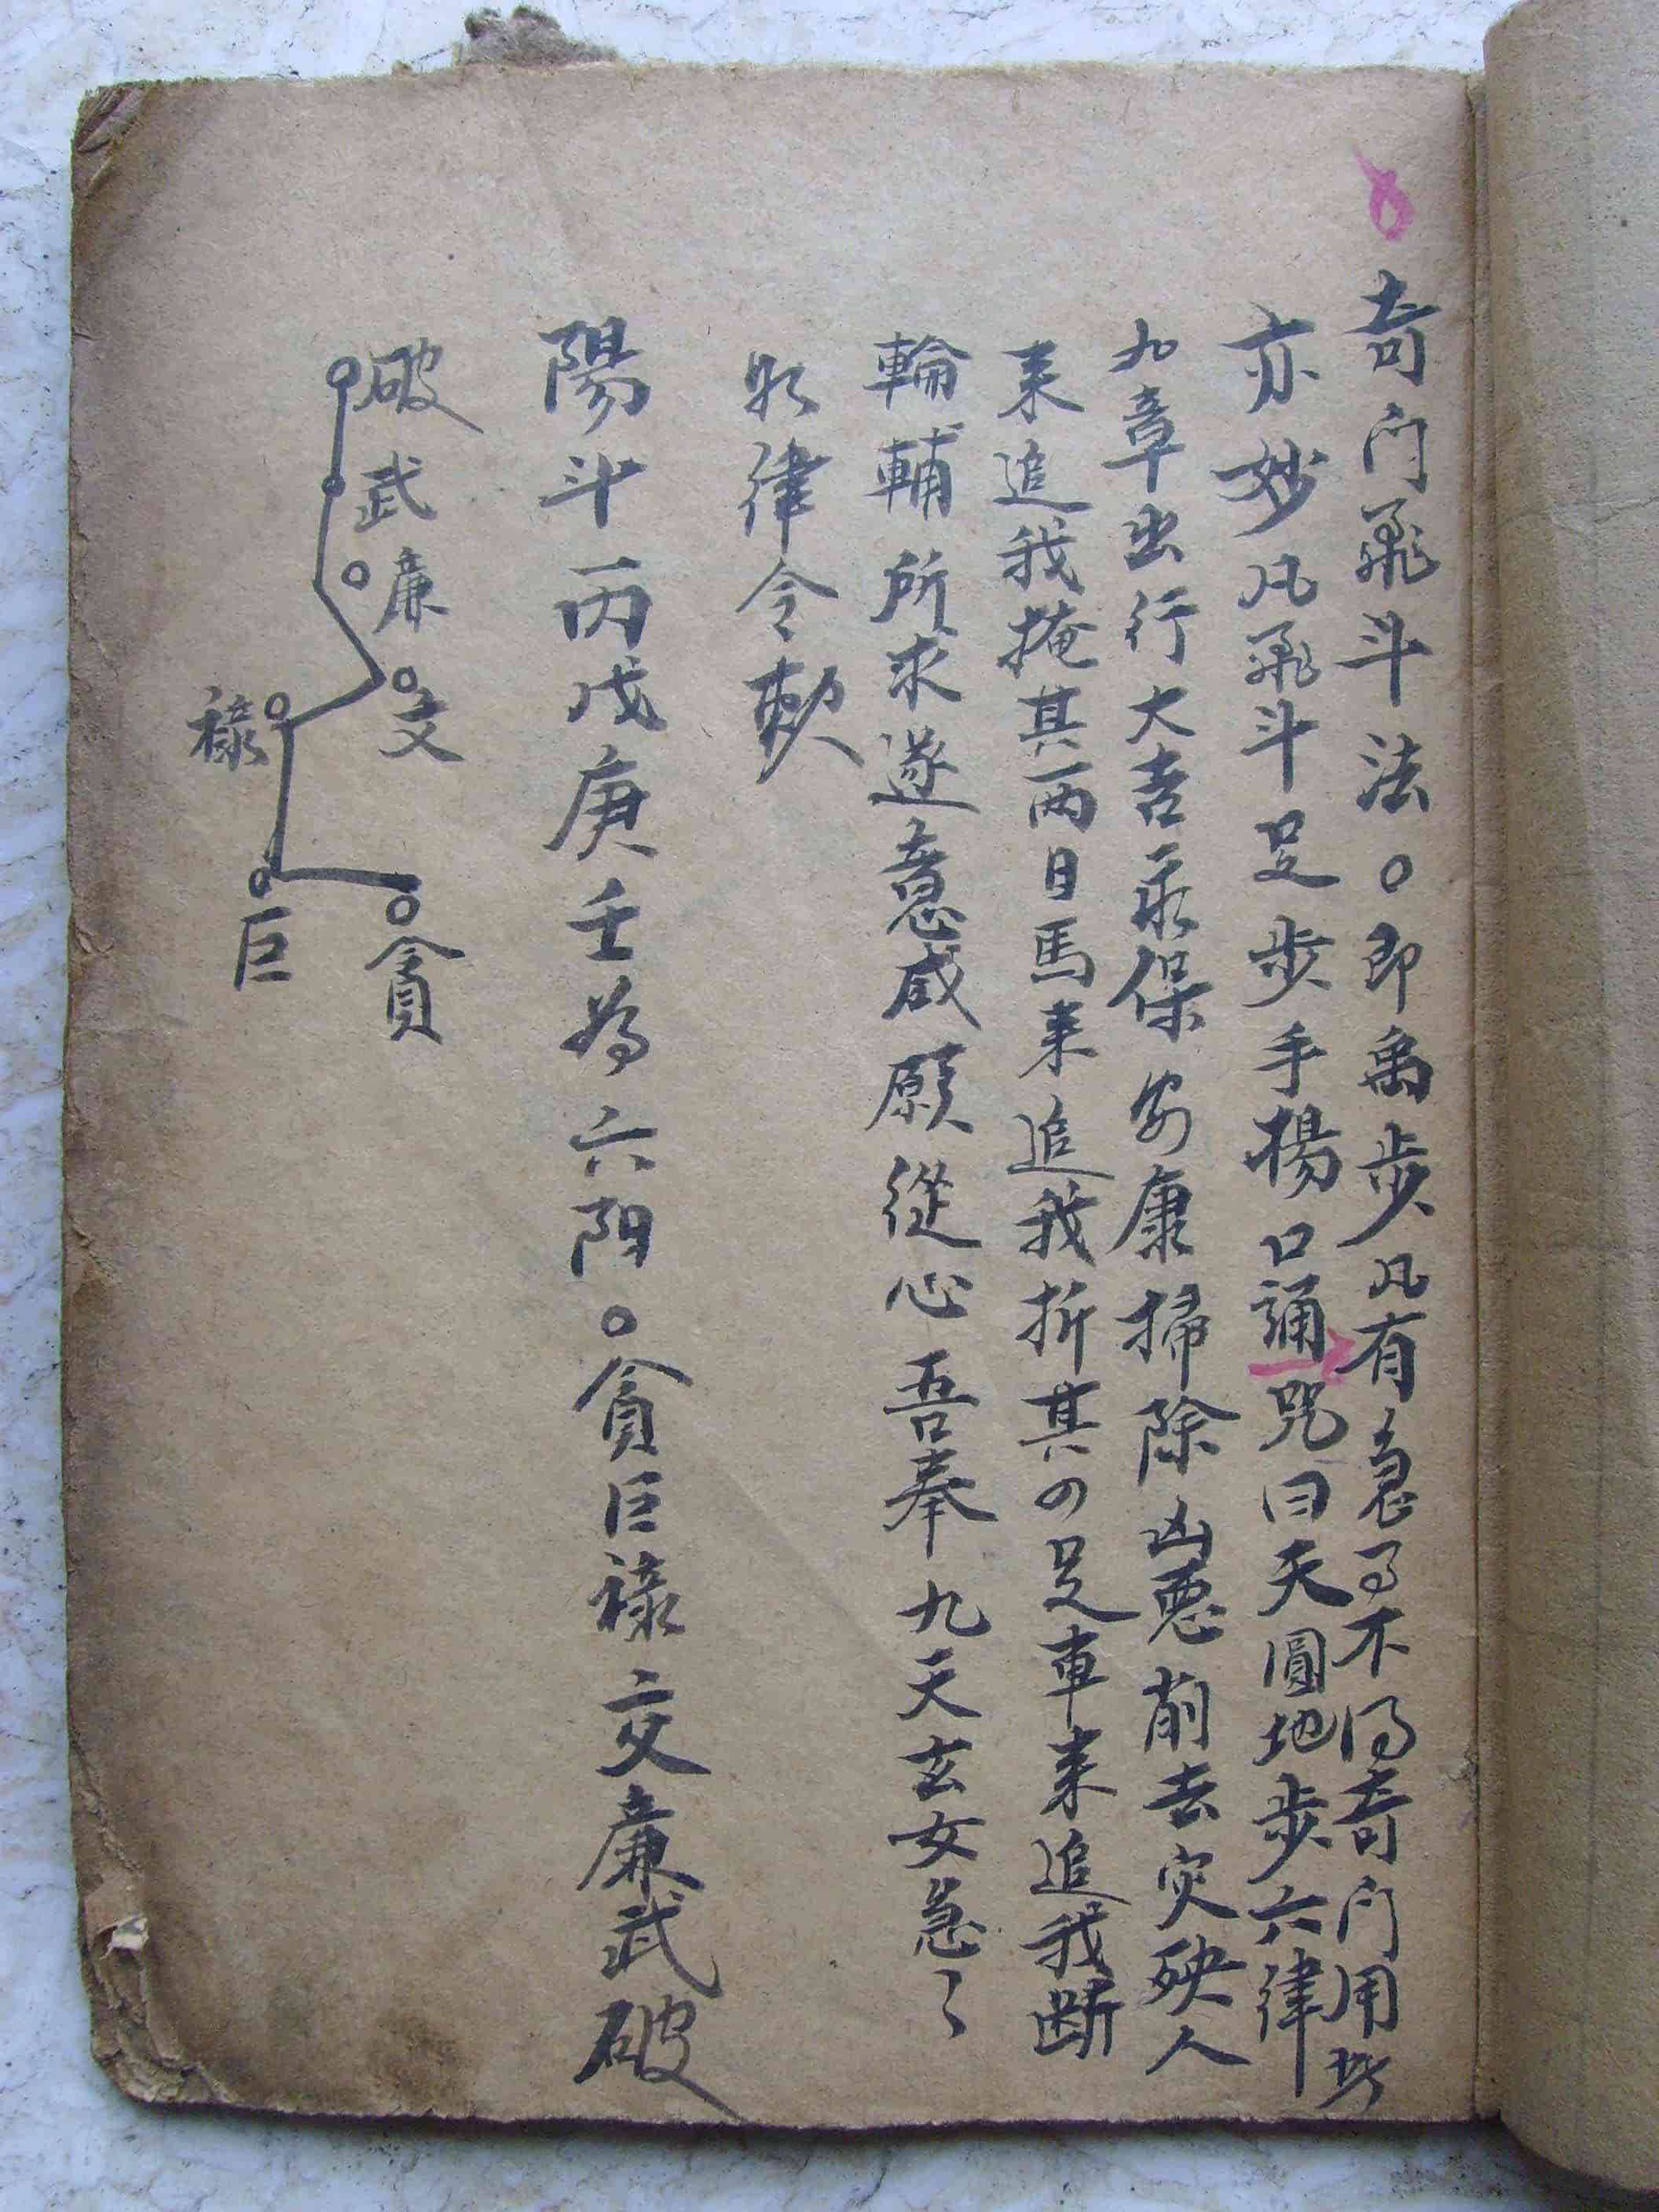 奇门飛斗法。即禹步凡有急了不得奇门用此
亦妙凡飛斗足步手揚口誦咒曰天圓地步六律
九章出行大吉永保安康掃除凶惡削去灾殃人
来追我掩其两目馬来追我折其四足車来追我断
輪輔所求遂意咸願從心吾奉九天玄女急々
如律令敕
陽斗丙戊庚壬為六阳。貪巨禄文廉武破
破武廉文
禄
巨
貪